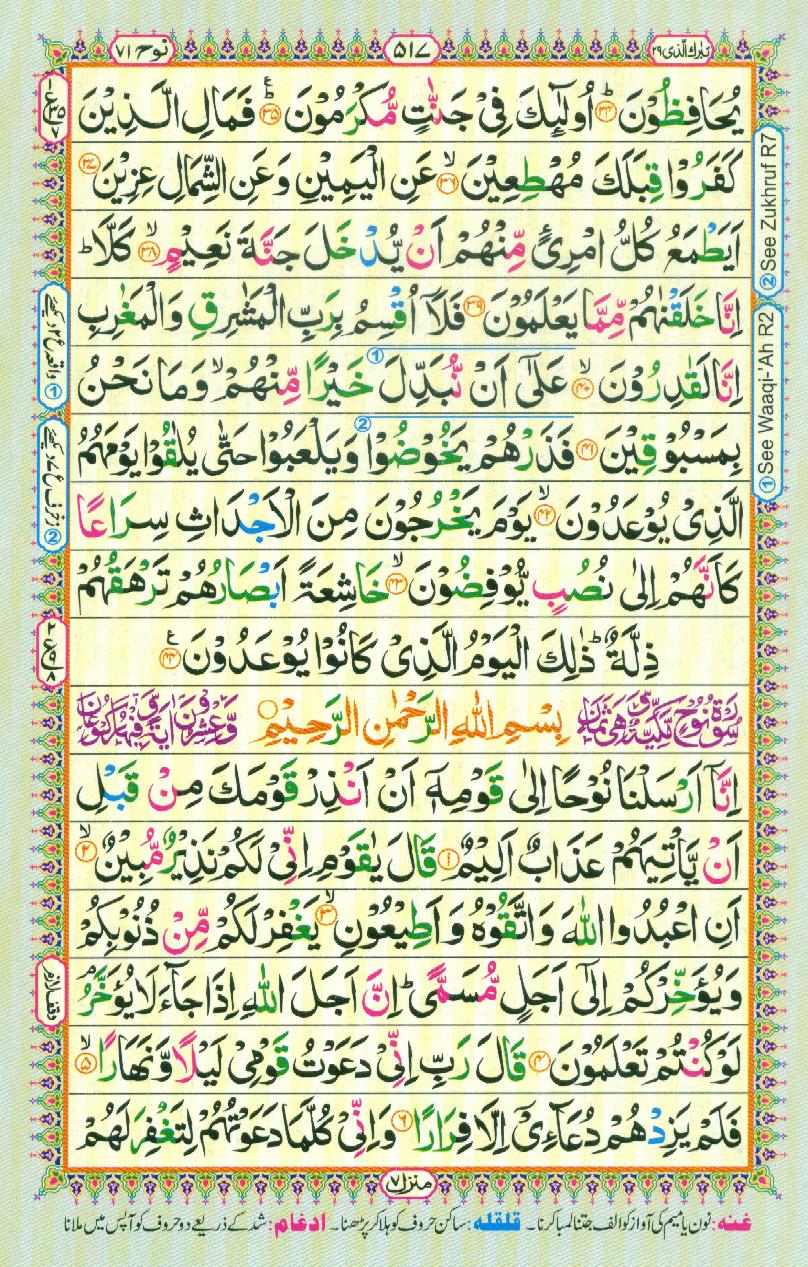 تبٰرك الّذى ٢٩
٥١٧
نوح ٧١
يُحَافِظُوْنَ ﴿٣٤﴾ اُولٰٓئِكَ فِىْ جَنّٰتٍ مُّكْرَمُوْنَ ﴿٣٥﴾ فَمَالِ الَّذِيْنَ
كَفَرُوْا قِبَلَكَ مُهْطِعِيْنَ ﴿٣٦﴾ عَنِ الْيَمِيْنِ وَعَنِ الشِّمَالِ عِزِيْنَ ﴿٣٧﴾
اَيَطْمَعُ كُلُّ امْرِئٍ مِّنْهُمْ اَنْ يُّدْخَلَ جَنَّةَ نَعِيْمٍ ﴿٣٨﴾ كَلَّا ؕ
اِنَّا خَلَقْنٰهُمْ مِّمَّا يَعْلَمُوْنَ ﴿٣٩﴾ فَلَاۤ اُقْسِمُ بِرَبِّ الْمَشٰرِقِ وَالْمَغٰرِبِ
اِنَّا لَقٰدِرُوْنَ ﴿٤٠﴾ عَلٰٓى اَنْ نُّبَدِّلَ خَيْرًا مِّنْهُمْ ۙ وَمَا نَحْنُ
بِمَسْبُوْقِيْنَ ﴿٤١﴾ فَذَرْهُمْ يَخُوْضُوْا وَيَلْعَبُوْا حَتّٰى يُلٰقُوْا يَوْمَهُمُ
الَّذِىْ يُوْعَدُوْنَ ﴿٤٢﴾ يَوْمَ يَخْرُجُوْنَ مِنَ الْاَجْدَاثِ سِرَاعًا
كَاَنَّهُمْ اِلٰى نُصُبٍ يُّوْفِضُوْنَ ﴿٤٣﴾ خَاشِعَةً اَبْصَارُهُمْ تَرْهَقُهُمْ
ذِلَّةٌ ؕ ذٰلِكَ الْيَوْمُ الَّذِىْ كَانُوْا يُوْعَدُوْنَ ﴿٤٤﴾
سُوْرَةُ نُوْحٍ مَّكِّيَّةٌ وَّهِىَ ثَمَانٍ بِسْمِ اللهِ الرَّحْمٰنِ الرَّحِيْمِ وَّعِشْرُوْنَ اٰيَةً وَّفِيْهَا رُكُوْعَانِ
اِنَّاۤ اَرْسَلْنَا نُوْحًا اِلٰى قَوْمِهٖۤ اَنْ اَنْذِرْ قَوْمَكَ مِنْ قَبْلِ
اَنْ يَّاْتِيَهُمْ عَذَابٌ اَلِيْمٌ ﴿١﴾ قَالَ يٰقَوْمِ اِنِّىْ لَكُمْ نَذِيْرٌ مُّبِيْنٌ ﴿٢﴾
اَنِ اعْبُدُوا اللهَ وَاتَّقُوْهُ وَاَطِيْعُوْنِ ﴿٣﴾ يَغْفِرْ لَكُمْ مِّنْ ذُنُوْبِكُمْ
وَيُؤَخِّرْكُمْ اِلٰٓى اَجَلٍ مُّسَمًّى ؕ اِنَّ اَجَلَ اللهِ اِذَا جَآءَ لَا يُؤَخَّرُ ۘ
لَوْ كُنْتُمْ تَعْلَمُوْنَ ﴿٤﴾ قَالَ رَبِّ اِنِّىْ دَعَوْتُ قَوْمِىْ لَيْلًا وَّنَهَارًا ﴿٥﴾
فَلَمْ يَزِدْهُمْ دُعَآءِىْۤ اِلَّا فِرَارًا ﴿٦﴾ وَاِنِّىْ كُلَّمَا دَعَوْتُهُمْ لِتَغْفِرَ لَهُمْ
② See Zukhruf R7
① See Waaqi-'Ah R2
① واقعہ ع ۲ دیکھئے
② زخرف ع ۷ دیکھئے
وقف لازم
منزل ٧
غنه: نون یا میم کی آواز کو الف جتنا لمبا کرنا۔ قلقله: ساکن حروف کو ہلا کر پڑھنا۔ ادغام: شد کے ذریعے دو حروف کو آپس میں ملانا